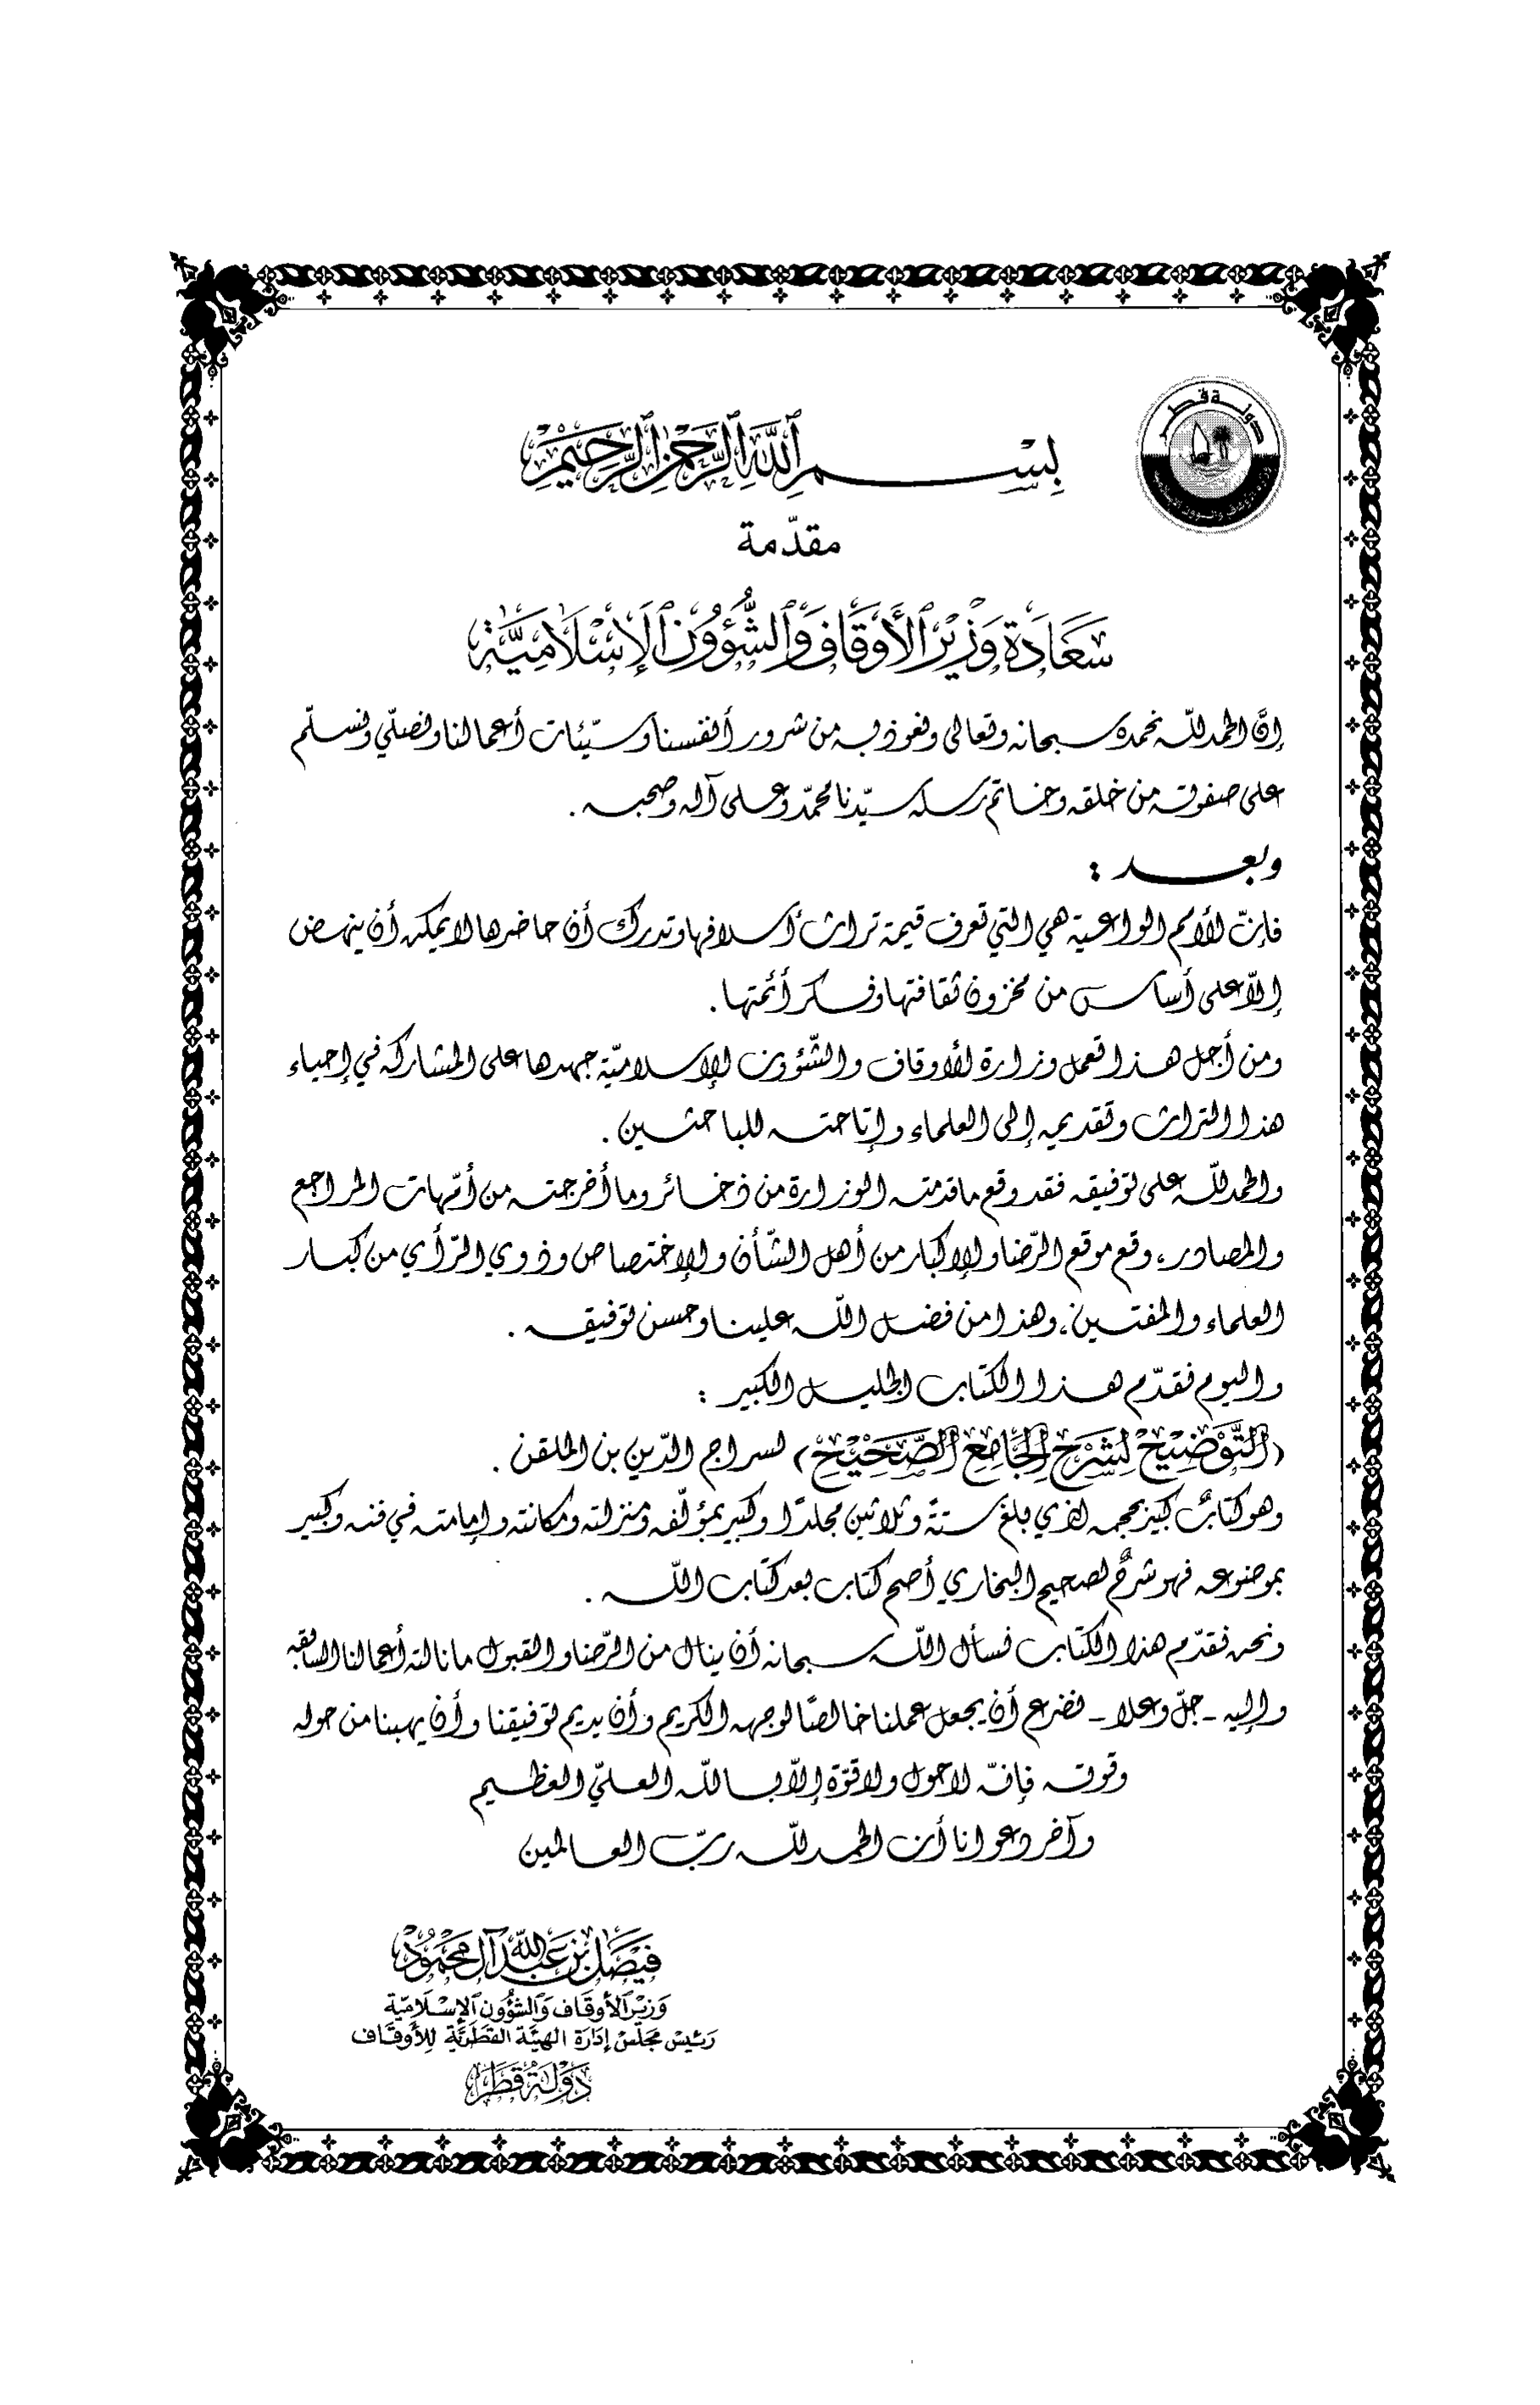 دولة قطر
بِسْمِ ٱللَّهِ ٱلرَّحْمَٰنِ ٱلرَّحِيمِ
مقدّمة
سَعَادَة وَزِيْر ٱلْأَوْقَاف وَٱلشُّؤُوْن ٱلْإِسْلَامِيَّة
إنَّ الحمد للّه نحمده سبحانه وتعالى ونعوذ به من شرور أنفسنا وسيّئات أعمالنا ونصلّي ونسلّم
على صفوته من خلقه وخاتم رسله سيّدنا محمّد وعلى آله وصحبه .
وبعد :
فإنّ الأمم الواعية هي التي تعرف قيمة تراث أسلافها وتدرك أن حاضرها لا يمكن أن ينهض
إلّا على أساس من مخزون ثقافتها وفكر أئمتها .
ومن أجل هذا تعمل وزارة الأوقاف والشّؤون الإسلاميّة جهدها على المشاركة في إحياء
هذا التراث وتقديمه إلى العلماء وإتاحته للباحثين .
والحمد للّه على توفيقه فقد وقع ما قدمته الوزارة من ذخائر وما أخرجته من أمّهات المراجع
والمصادر، وقع موقع الرّضا والإكبار من أهل الشّأن والإختصاص وذوي الرّأي من كبار
العلماء والمفتين، وهذا من فضل اللّه علينا وحسن توفيقه .
واليوم نقدّم هذا الكتاب الجليل الكبير :
(التَّوْضِيْحُ لِشَرْحِ الْجَامِعِ الصَّحِيْحِ) لسراج الدّين بن الملقن .
وهو كتابٌ كبيرٌ بحجمه الذي بلغ ستةً وثلاثين مجلدًا وكبير بمؤلّفه ومنزلته ومكانته وإمامته في فنه وكبير
بموضوعه فهو شرحٌ لصحيح البخاري أصح كتاب بعد كتاب اللّه .
ونحن نقدّم هذا الكتاب نسأل اللّه سبحانه أن ينال من الرّضا والقبول ما نالته أعمالنا السابقة
وإليه - جلّ وعلا - نضرع أن يجعل عملنا خالصًا لوجهه الكريم وأن يديم توفيقنا وأن يهبنا من حوله
وقوته فإنّه لا حول ولا قوّة إلّا باللّه العليّ العظيم
وآخر دعوانا أن الحمد للّه ربّ العالمين
فَيْصَل بْن عَبْدِ اللَّه آل مَحْمُوْد
وَزِيْر ٱلْأَوقَاف وَٱلشُّؤُون ٱلْإِسْلَامِيَّة
رَئِيْس مَجْلِسْ إِدَارَة الهَيْئَة القَطَرِيَّة لِلْأَوقَاف
دَوْلَةُ قَطَر